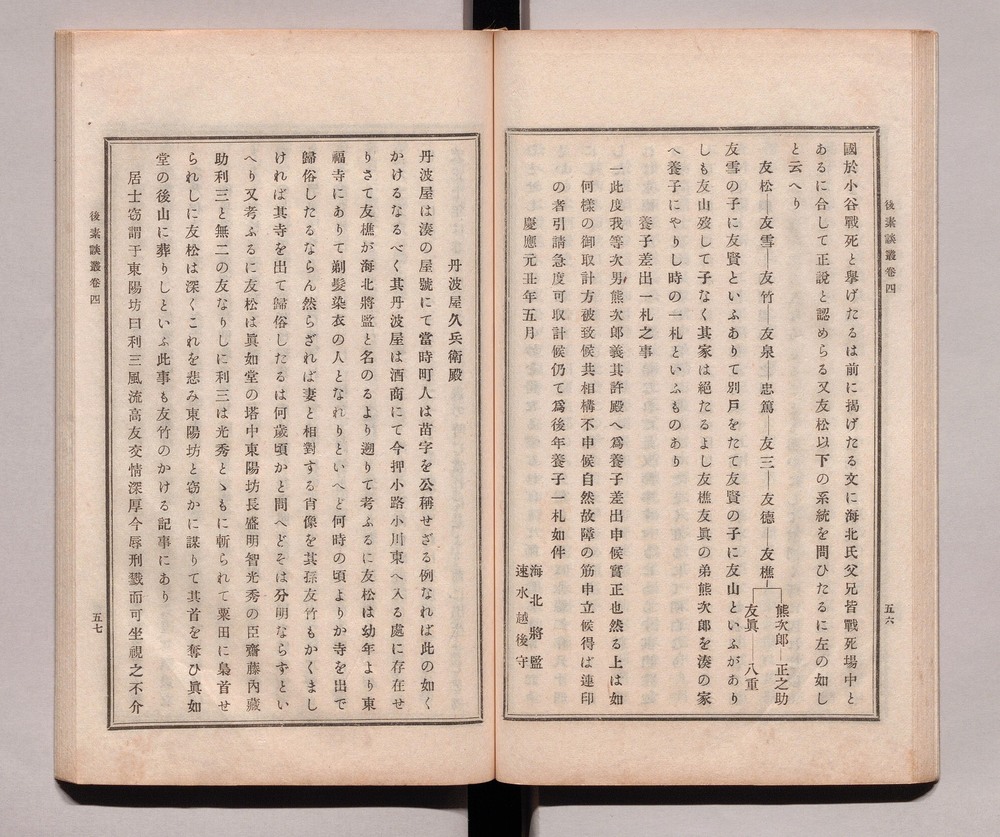 後素談叢卷四
五六
國於小谷戰死と擧げたるは前に揭げたる文に海北氏父兄皆戰死場中と
あるに合して正說と認めらる又友松以下の系統を問ひたるに左の如し
と云へり
友松―友雪―友竹―友泉―忠篤―友三―友德―友樵
熊次郎―正之助
友眞―八重
友雪の子に友賢といふありて別戶をたて友賢の子に友山といふがあり
しも友山歿して子なく其家は絕たるよし友樵友眞の弟熊次郎を湊の家
へ養子にやりし時の一札といふものあり
養子差出一札之事
一此度我等次男熊次郎義其許殿へ爲養子差出申候實正也然る上は如
何樣の御取計方被致候共相構不申候自然故障の筋申立候得ば連印
の者引請急度可取計候仍て爲後年養子一札如件
慶應元丑年五月
海北將監
速水越後守
丹波屋久兵衞殿
丹波屋は湊の屋號にて當時町人は苗字を公稱せざる例なれば此の如く
かけるなるべく其丹波屋は酒商にて今押小路小川東へ入る處に存在せ
りさて友樵が海北將監と名のるより遡りて考ふるに友松は幼年より東
福寺にありて剃髮染衣の人となれりといへど何時の頃よりか寺を出で
歸俗したるならん然らざれば妻と相對する肖像を其孫友竹もかくまし
ければ其寺を出て歸俗したるは何歲頃かと問へどそは分明ならずとい
へり又考ふるに友松は眞如堂の塔中東陽坊長盛明智光秀の臣齋藤內藏
助利三と無二の友なりしに利三は光秀とゝもに斬られて粟田に梟首せ
られしに友松は深くこれを悲み東陽坊と窃かに謀りて其首を奪ひ眞如
堂の後山に葬りしといふ此事も友竹のかける記事にあり
居士窃謂于東陽坊曰利三風流高友交情深厚今辱刑戮而可坐視之不介
後素談叢卷四
五七